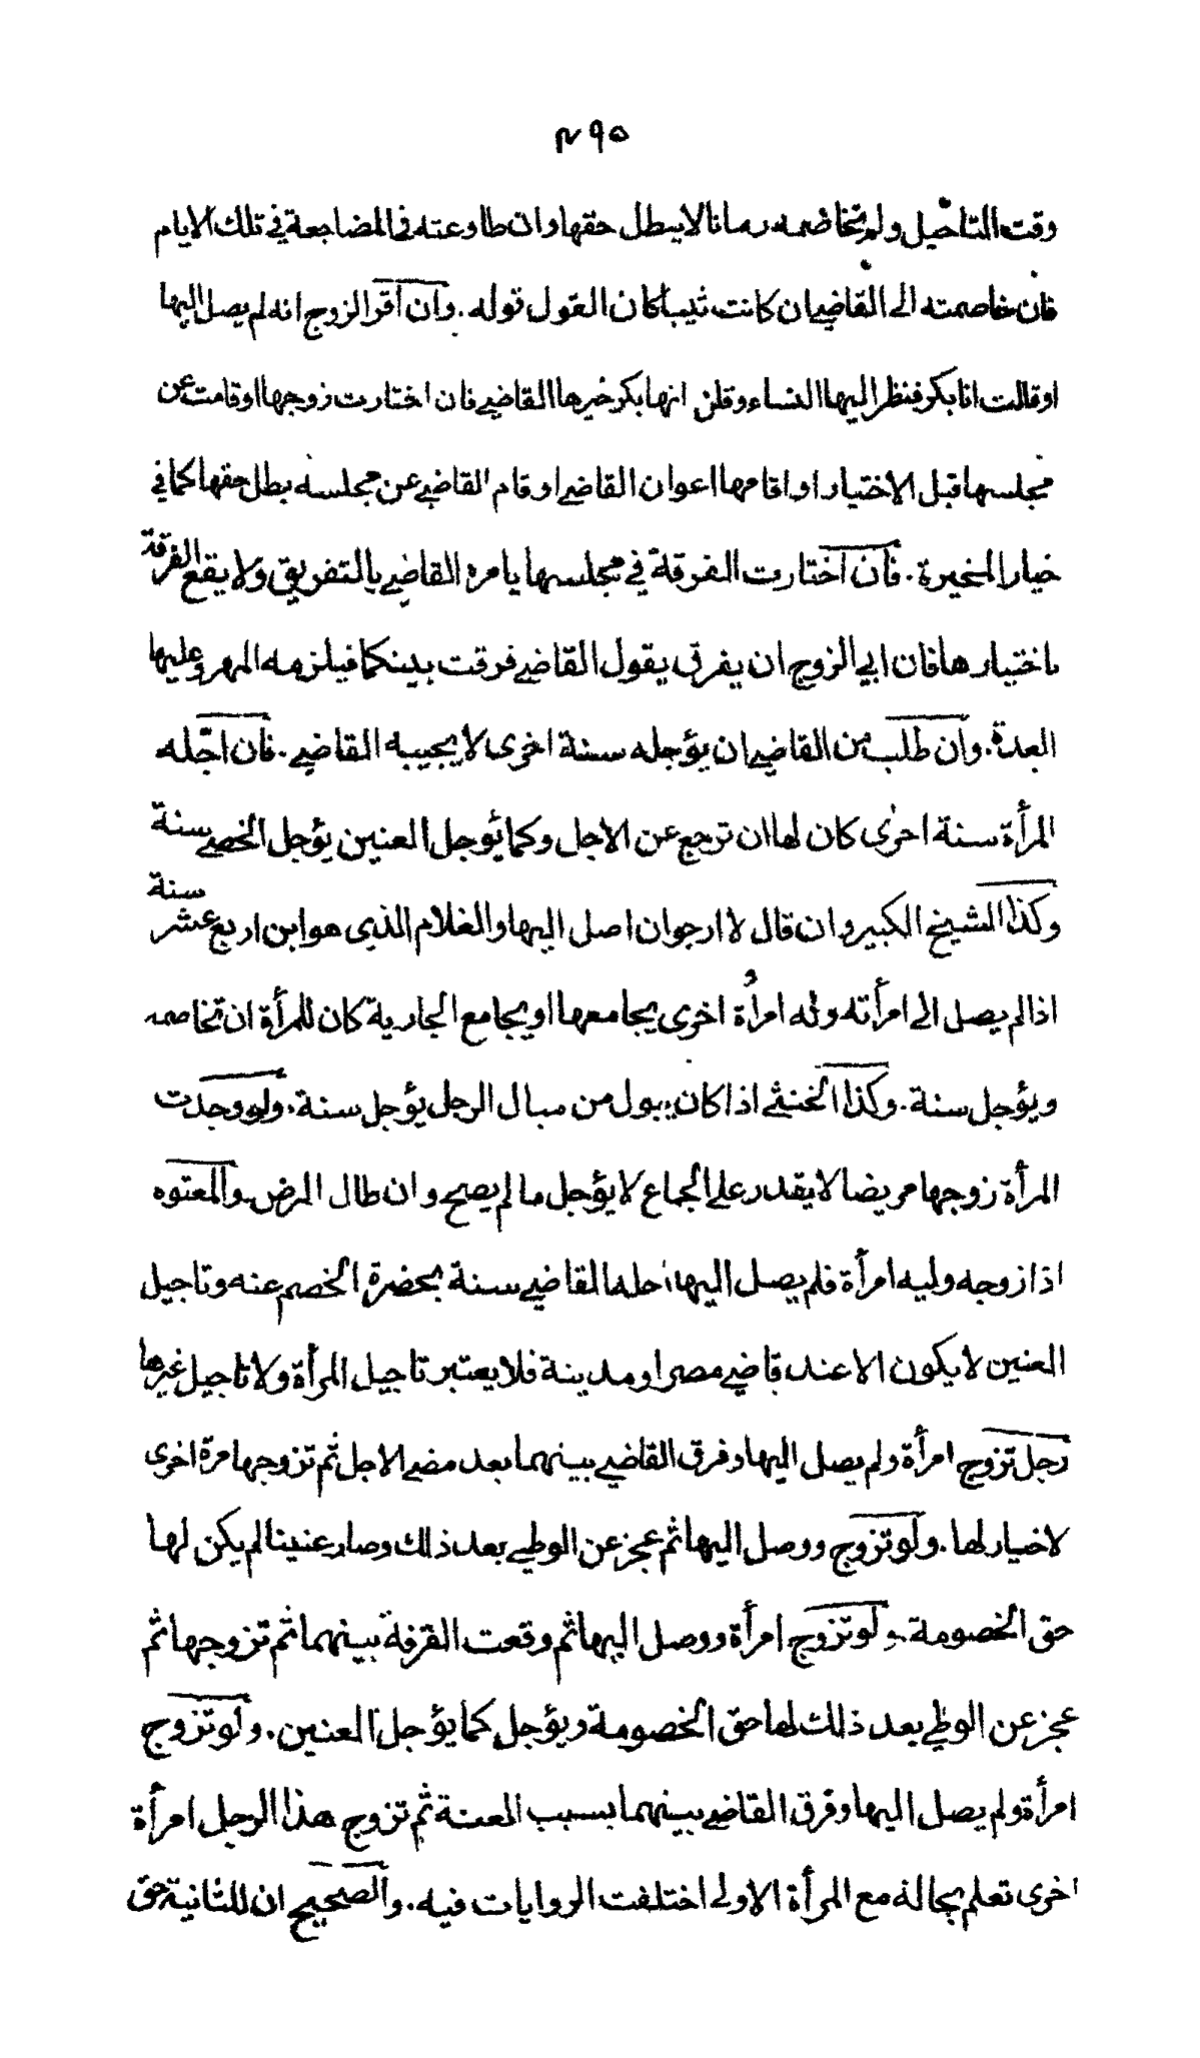 ٢٩٥
وقت التاجيل ولم تخاصمه زمانا لا يبطل حقها وان طاوعته في المضاجعة في تلك الايام
فان خاصمته الى القاضي ان كانت ثيبا كان القول قوله . وان اقر الزوج انه لم يصل اليها
او قالت انا بكر فنظر اليها النساء وقلن انها بكر خيرها القاضي فان اختارت زوجها او قامت عن
مجلسها قبل الاختيار او اقامها اعوان القاضي او قام القاضي عن مجلسه بطل حقها كما في
خيار المخيرة . فان اختارت الفرقة في مجلسها يامره القاضي بالتفريق ولا يقع الفرقة
باختيارها فان ابي الزوج ان يفرق يقول القاضي فرقت بينكما فيلزمه المهر وعليها
العدة . وان طلب من القاضي ان يؤجله سنة اخرى لا يجيبه القاضي . فان اجّله
المرأة سنة اخرى كان لها ان ترجع عن الاجل وكما يؤجل العنين يؤجل الخصي سنة
وكذا الشيخ الكبير وان قال لا ارجو ان اصل اليها والغلام الذي هو ابن اربع عشر سنة
اذا لم يصل الى امرأته وله امرأة اخرى يجامعها او يجامع الجارية كان للمرأة ان تخاصمه
ويؤجل سنة . وكذا الخنثى اذا كان يبول من مبال الرجل يؤجل سنة . ولو وجدت
المرأة زوجها مريضا لا يقدر على الجماع لا يؤجل ما لم يصح وان طال المرض . والمعتوه
اذا زوجه وليه امرأة فلم يصل اليها اجله القاضي سنة بحضرة الخصم عنه وتاجيل
العنين لا يكون الا عند قاضي مصر او مدينة فلا يعتبر تاجيل المرأة ولا تاجيل غيرها
رجل تزوج امرأة ولم يصل اليها وفرق القاضي بينهما بعد مضي الاجل ثم تزوجها مرة اخرى
لا خيار لها . ولو تزوج ووصل اليها ثم عجز عن الوطي بعد ذلك وصار عنينا لم يكن لها
حق الخصومة . ولو تزوج امرأة ووصل اليها ثم وقعت الفرقة بينهما ثم تزوجها ثم
عجز عن الوطي بعد ذلك لها حق الخصومة ويؤجل كما يؤجل العنين . ولو تزوج
امرأة ولم يصل اليها وفرق القاضي بينهما بسبب العنة ثم تزوج هذا الرجل امرأة
اخرى تعلم بحاله مع المرأة الاولى اختلفت الروايات فيه . والصحيح ان للثانية حق